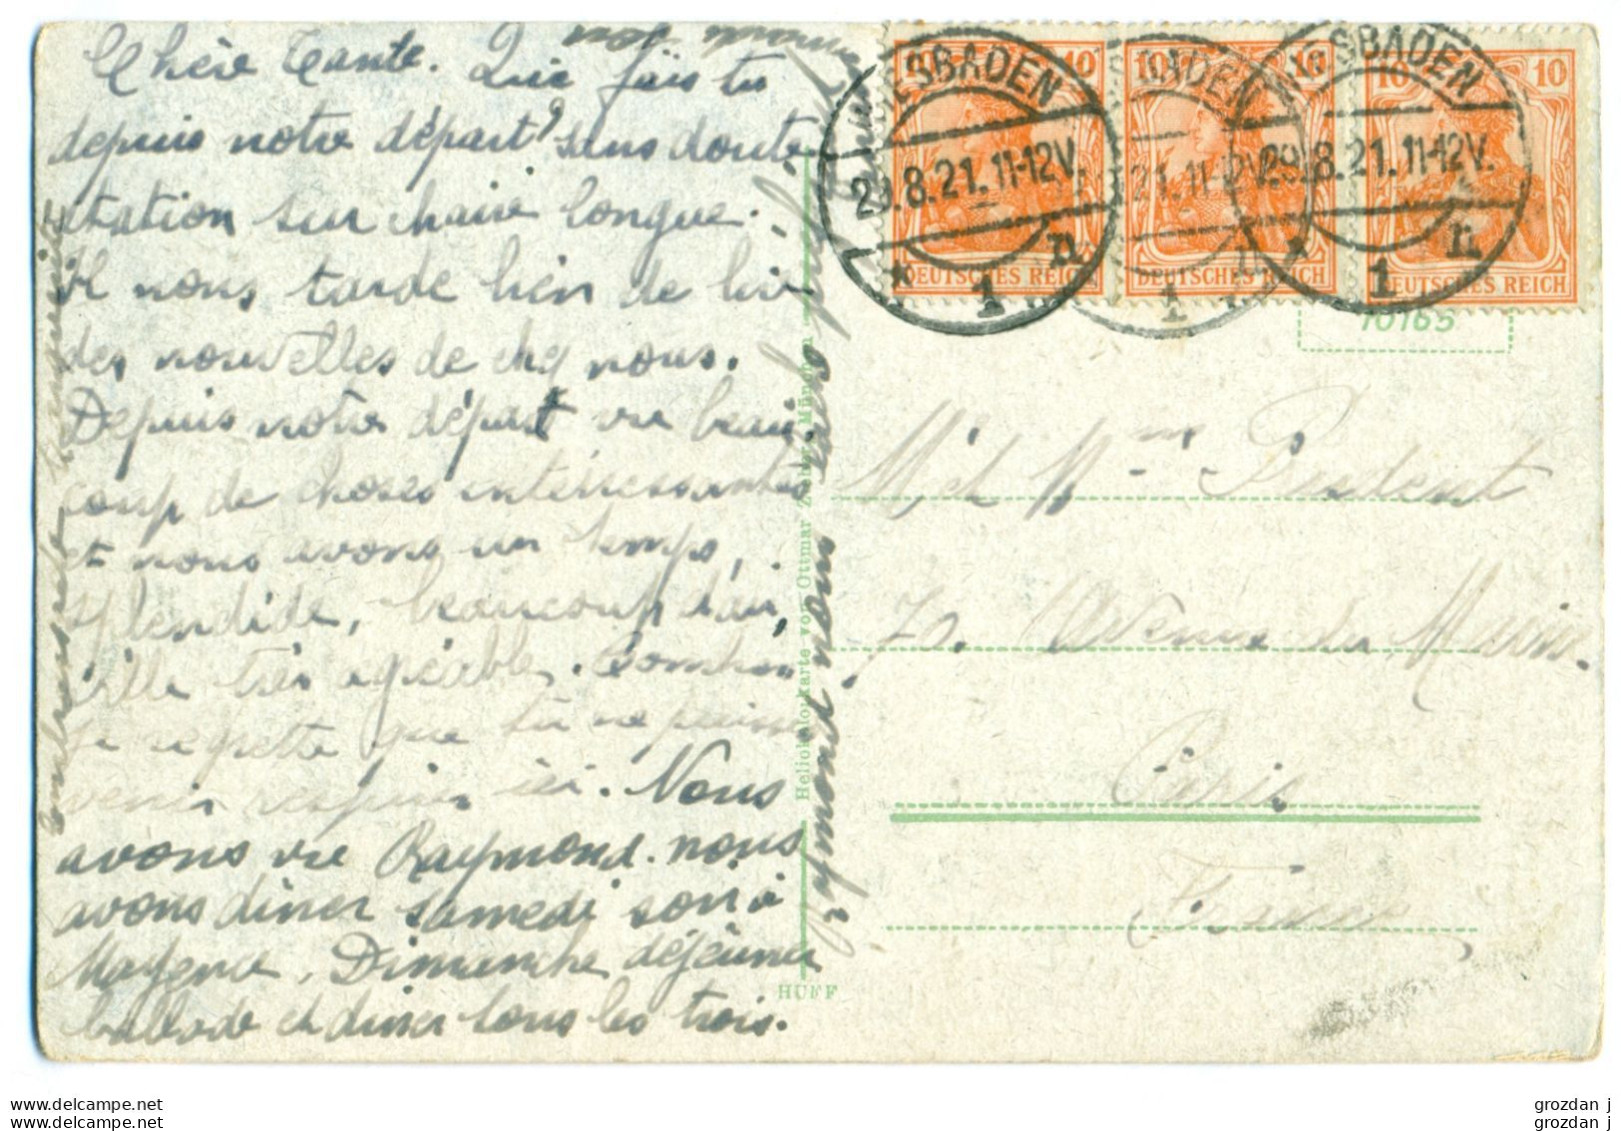 Chère Tante. Que fais tu
depuis notre départ? sans doute
station sur chaise longue.
il nous tarde bien de lire
des nouvelles de chez nous.
Depuis notre départ vu beau
coup de choses intéressantes
et nous avons un temps
splendide, beaucoup d'air,
ville très agréable. Combien
je regrette que tu ne puisses
venir respirer ici. Nous
avons vu Raymond. nous
avons diner samedi soir à
Mayence, Dimanche déjeuner
ballade et diner tous les trois.
embrasse
Heliokolorkarte von Ottmar Zieher, München
HUFF
10 10 10 10
WIESBADEN
29.8.21.11-12V.
* 1 n
DEUTSCHES REICH
BADEN
21.11-12V.
* 1 n
DEUTSCHES REICH
SBADEN
29.8.21.11-12V.
* 1 n
DEUTSCHES REICH
10165
M et Mme
70. Avenue du Maine.
Paris
France
www.delcampe.net
www.delcampe.net
grozdan j
grozdan j